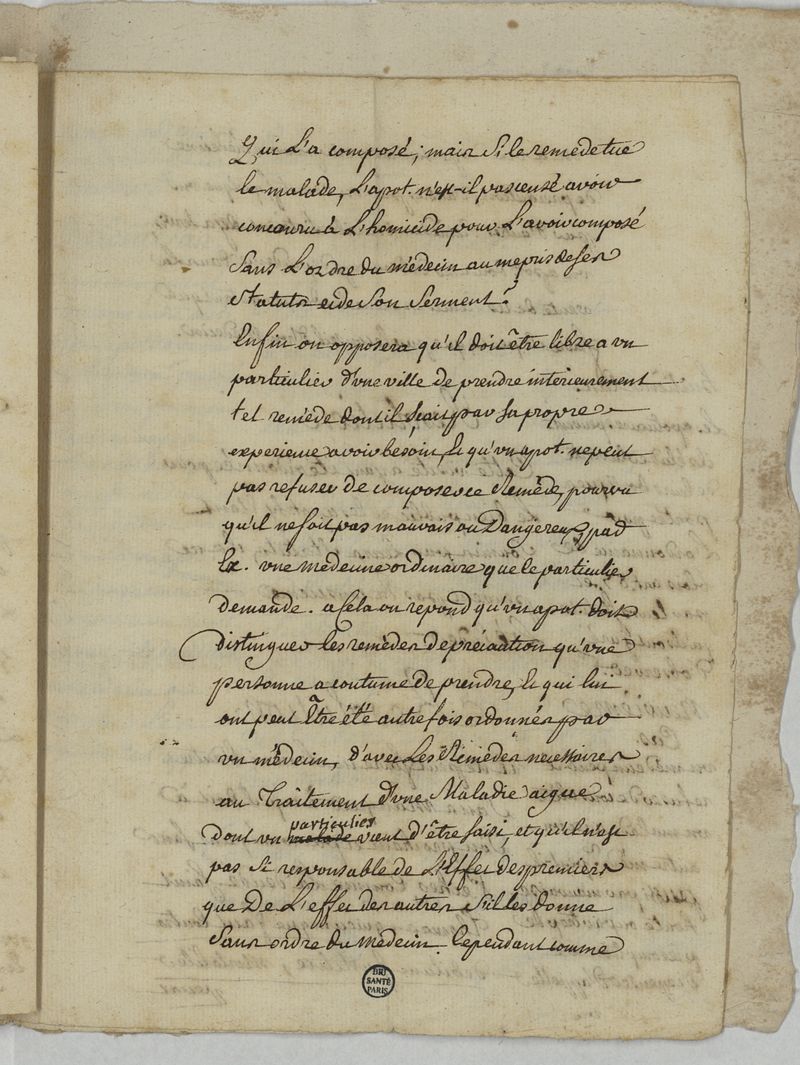 Qui L'a composé; mais Si le remede tue
le malade, L'apot. n'est-il pas censé avoir
concouru à L'homicide pour L'avoir composé
Sans L'ordre du médecin au mepris de ses
statuts et de Son Serment?
Enfin on opposera qu'il doit être libre a un
particulier d'une ville de prendre interieurement
tel remède dont il sçait par sa propre
experience avoir bésoin, Et qu'un apot. ne peut
pas refuser de composer ce Remède, pourvu
qu'il ne soit pas mauvais ou Dangereux, par
Ex. une medecine ordinaire que le particulier
demande. a Cela on répond qu'un apot. doit
distinguer les remedes de précaution qu'une
personne a coutume de prendre, Et qui lui
ont peut Être été autrefois ordonnés par
un médecin, d'avec Les Remedes necessaires
au Traitement d'une Maladie aigue
particulier
Dont un malade vient d'être saisi, et qu'il n'est
pas Si responsable de L'Effet des premiers
que De L'effet des autres s'il les donne
Sans ordre du médecin. Cependant comme
BIU
SANTÉ
PARIS